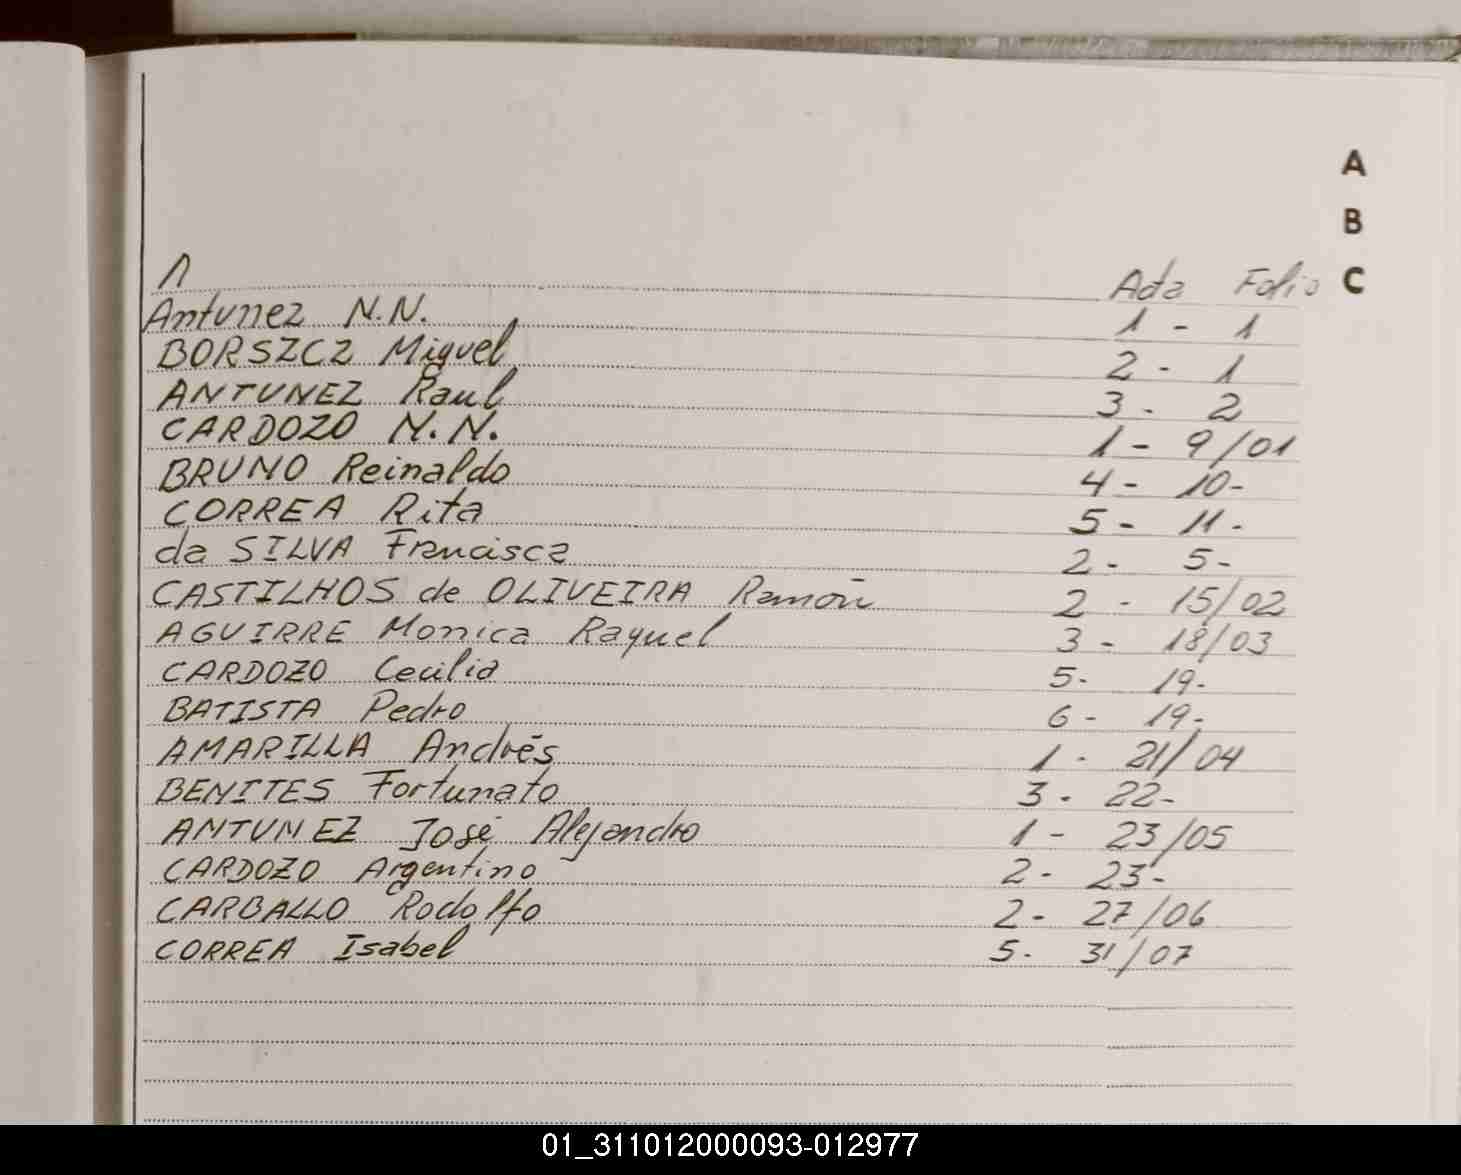 A
B
C
A Acta Folio
Antunez N.N. 1 - 1
BORSZCZ Miguel 2 - 1
ANTUNEZ Raul 3 - 2
CARDOZO N.N. 1 - 9/01
BRUNO Reinaldo 4 - 10-
CORREA Rita 5 - 11-
da SILVA Francisca 2 - 5-
CASTILHOS de OLIVEIRA Ramón 2 - 15/02
AGUIRRE Monica Raquel 3 - 18/03
CARDOZO Cecilia 5- 19-
BATISTA Pedro 6 - 19-
AMARILLA Andrés 1 - 21/04
BENITES Fortunato 3 - 22-
ANTUNEZ José Alejandro 1 - 23/05
CARDOZO Argentino 2 - 23-
CARBALLO Rodolfo 2 - 27/06
CORREA Isabel 5 - 31/07
01_311012000093-012977